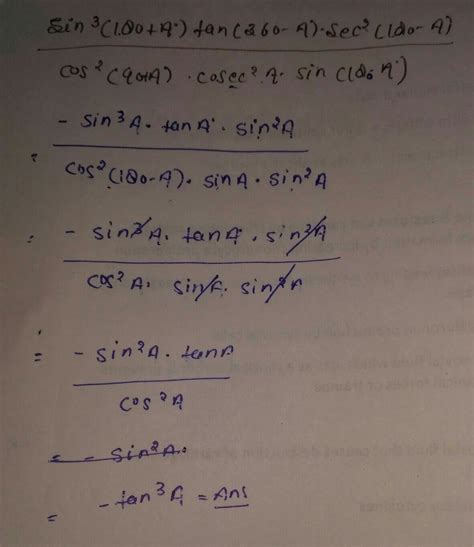 sin³(180+A) tan(360-A)·sec²(180-A)
cos²(90+A) · cosec²A · sin(180 A)
- sin³A · tanA · sin²A
cos²(180-A) · sinA · sin²A
= - sin³A · tanA · sin²A
cos²A · sinA · sin²A
= - sin²A · tanA
cos²A
= - sin²A
= - tan³A = Ans